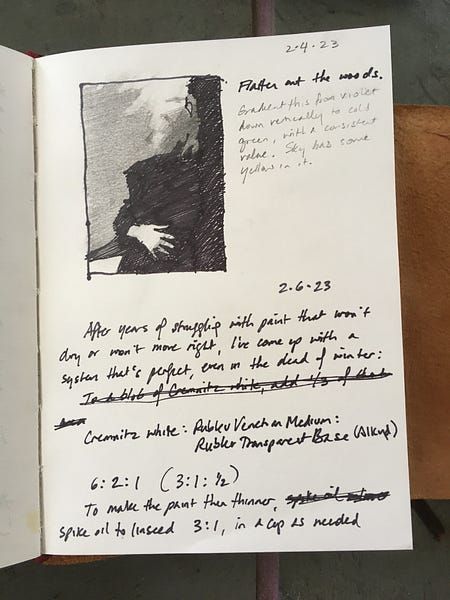 2.4.23
Flatten out the woods.
Gradient this from violet
down vertically to cold
green, with a consistent
value. Sky has some
yellow in it.
2.6.23
After years of struggling with paint that won't
dry or won't move right, I've come up with a
system that's perfect, even in the dead of winter:
To a blob of Cremnitz white, add 1/3 of that
Cremnitz white : Rublev Venetian Medium :
Rublev Transparent Base (Alkyd)
6:2:1 (3:1:½)
To make the paint then thinner, spike oil
spike oil to linseed 3:1, in a cup as needed